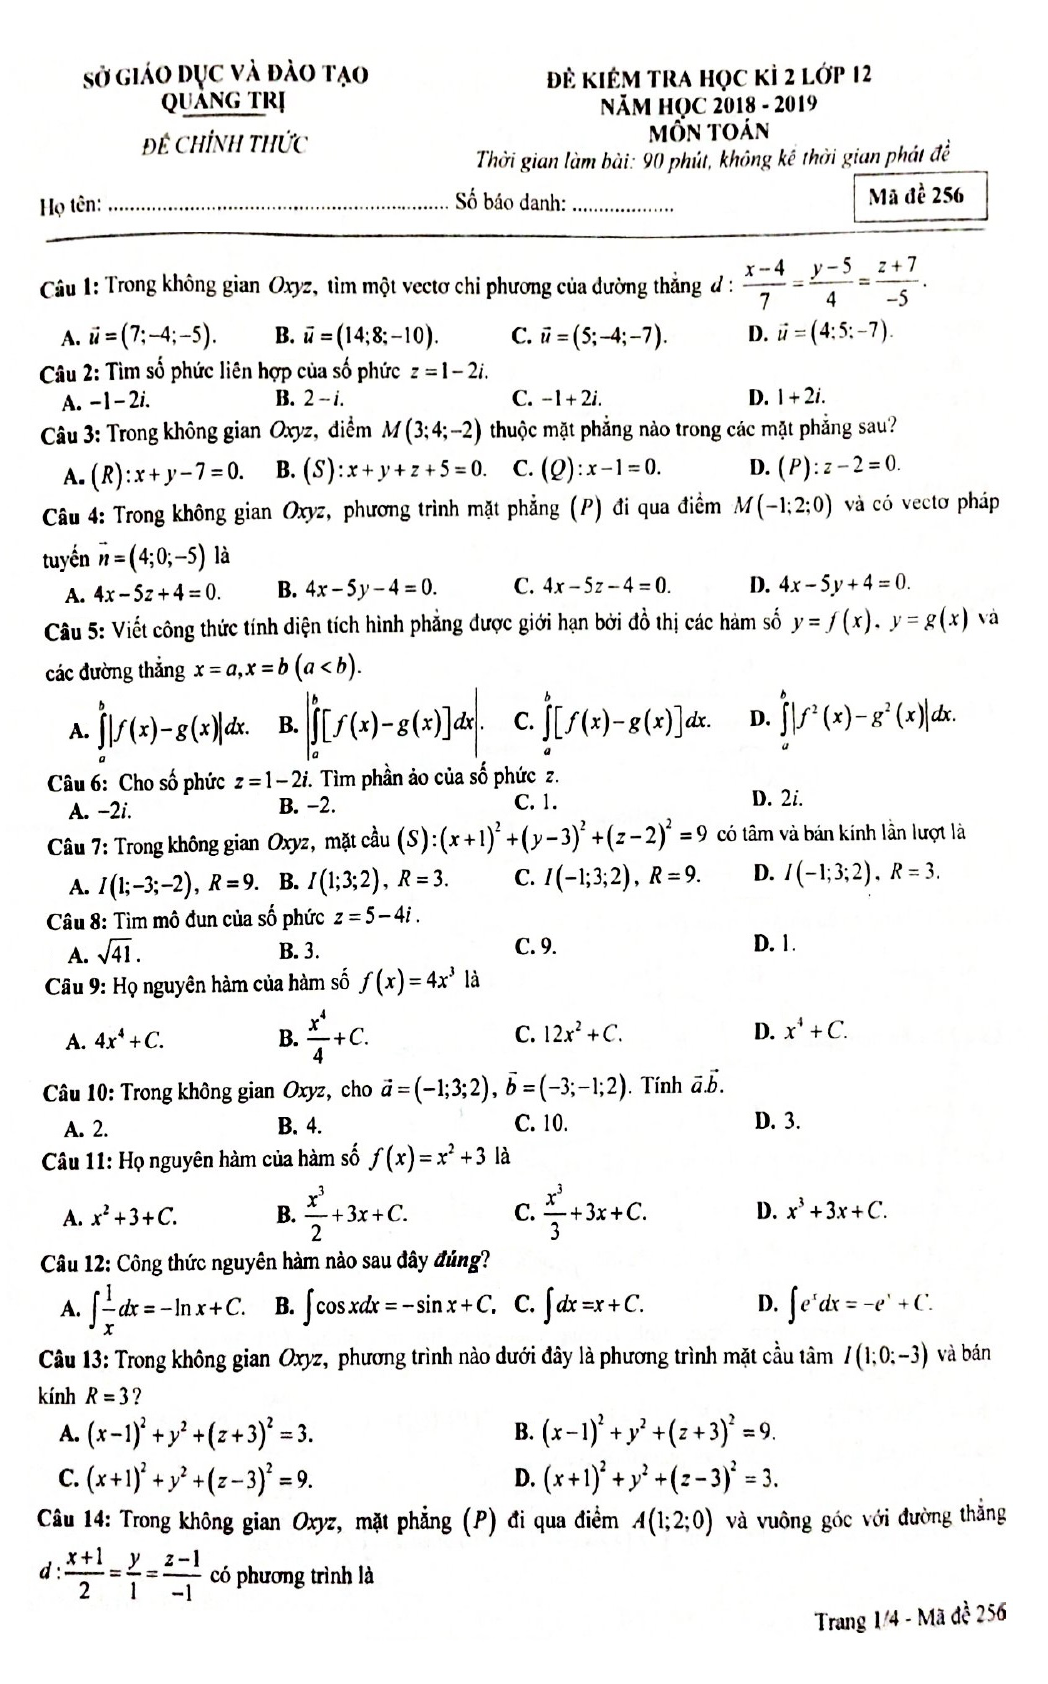 SỞ GIÁO DỤC VÀ ĐÀO TẠO
QUẢNG TRỊ
ĐỀ CHÍNH THỨC
ĐỀ KIỂM TRA HỌC KÌ 2 LỚP 12
NĂM HỌC 2018 - 2019
MÔN TOÁN
Thời gian làm bài: 90 phút, không kể thời gian phát đề
Họ tên: ........................................................ Số báo danh: ................... Mã đề 256
Câu 1: Trong không gian Oxyz, tìm một vectơ chỉ phương của đường thẳng d : (x−4)/7 = (y−5)/4 = (z+7)/−5 .
A. u⃗ = (7;−4;−5). B. u⃗ = (14;8;−10). C. u⃗ = (5;−4;−7). D. u⃗ = (4;5;−7).
Câu 2: Tìm số phức liên hợp của số phức z = 1 − 2i.
A. −1−2i. B. 2−i. C. −1+2i. D. 1+2i.
Câu 3: Trong không gian Oxyz, điểm M(3;4;−2) thuộc mặt phẳng nào trong các mặt phẳng sau?
A. (R): x + y − 7 = 0. B. (S): x + y + z + 5 = 0. C. (Q): x − 1 = 0. D. (P): z − 2 = 0.
Câu 4: Trong không gian Oxyz, phương trình mặt phẳng (P) đi qua điểm M(−1;2;0) và có vectơ pháp
tuyến n⃗ = (4;0;−5) là
A. 4x − 5z + 4 = 0. B. 4x − 5y − 4 = 0. C. 4x − 5z − 4 = 0. D. 4x − 5y + 4 = 0.
Câu 5: Viết công thức tính diện tích hình phẳng được giới hạn bởi đồ thị các hàm số y = f(x), y = g(x) và
các đường thẳng x = a, x = b (a < b).
A. ∫ₐᵇ |f(x) − g(x)|dx. B. |∫ₐᵇ [f(x) − g(x)]dx|. C. ∫ₐᵇ [f(x) − g(x)]dx. D. ∫ₐᵇ |f²(x) − g²(x)|dx.
Câu 6: Cho số phức z = 1 − 2i. Tìm phần ảo của số phức z.
A. −2i. B. −2. C. 1. D. 2i.
Câu 7: Trong không gian Oxyz, mặt cầu (S): (x+1)² + (y−3)² + (z−2)² = 9 có tâm và bán kính lần lượt là
A. I(1;−3;−2), R = 9. B. I(1;3;2), R = 3. C. I(−1;3;2), R = 9. D. I(−1;3;2), R = 3.
Câu 8: Tìm mô đun của số phức z = 5 − 4i .
A. √41 . B. 3. C. 9. D. 1.
Câu 9: Họ nguyên hàm của hàm số f(x) = 4x³ là
A. 4x⁴ + C. B. x⁴/4 + C. C. 12x² + C. D. x⁴ + C.
Câu 10: Trong không gian Oxyz, cho a⃗ = (−1;3;2), b⃗ = (−3;−1;2). Tính a⃗.b⃗.
A. 2. B. 4. C. 10. D. 3.
Câu 11: Họ nguyên hàm của hàm số f(x) = x² + 3 là
A. x² + 3 + C. B. x³/2 + 3x + C. C. x³/3 + 3x + C. D. x³ + 3x + C.
Câu 12: Công thức nguyên hàm nào sau đây đúng?
A. ∫ 1/x dx = −ln x + C. B. ∫ cos xdx = −sin x + C. C. ∫ dx = x + C. D. ∫ eˣdx = −eˣ + C.
Câu 13: Trong không gian Oxyz, phương trình nào dưới đây là phương trình mặt cầu tâm I(1;0;−3) và bán
kính R = 3?
A. (x−1)² + y² + (z+3)² = 3. B. (x−1)² + y² + (z+3)² = 9.
C. (x+1)² + y² + (z−3)² = 9. D. (x+1)² + y² + (z−3)² = 3.
Câu 14: Trong không gian Oxyz, mặt phẳng (P) đi qua điểm A(1;2;0) và vuông góc với đường thẳng
d : (x+1)/2 = y/1 = (z−1)/−1 có phương trình là
Trang 1/4 - Mã đề 256